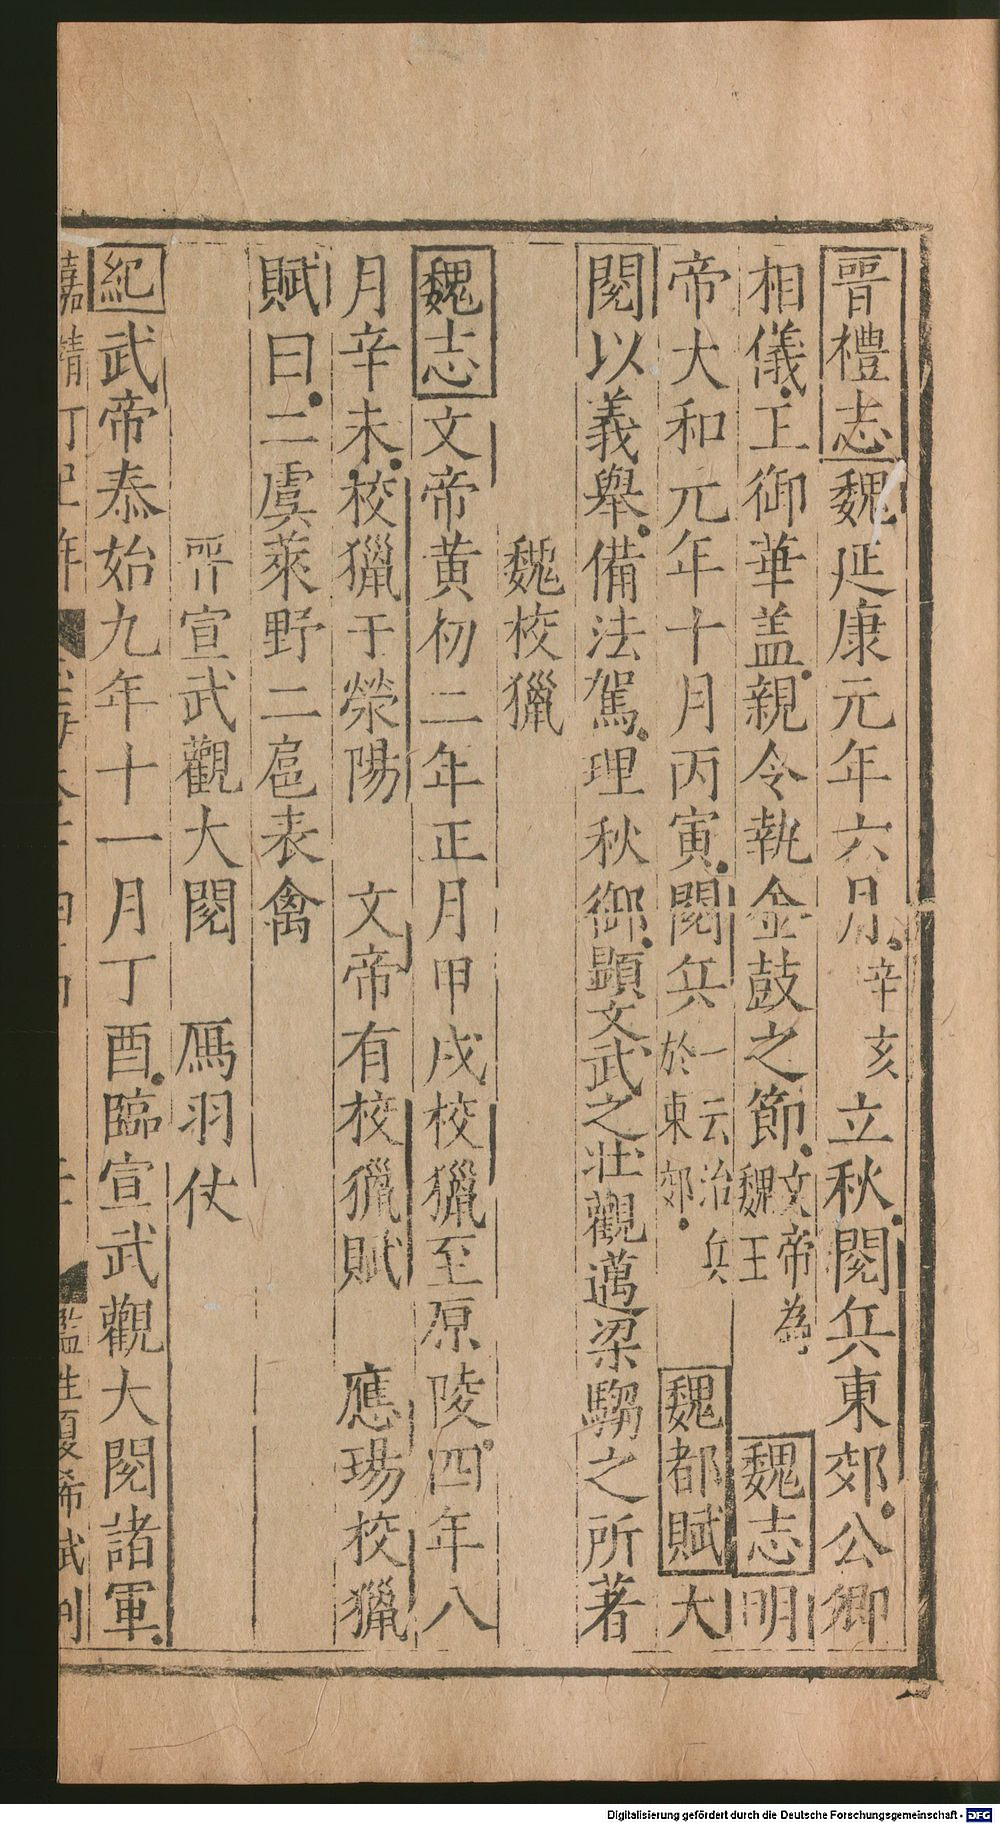 晉禮志魏延康元年六月辛亥立秋閱兵東郊公卿
相儀王御華盖親令執金鼓之節文帝為魏王魏志明
帝大和元年十月丙寅閱兵一云治兵於東郊魏都賦大
閱以義舉備法駕理秋御顯文武之壯觀邁梁騶之所著
魏校獵
魏志文帝黄初二年正月甲戌校獵至原陵四年八
月辛未校獵于滎陽 文帝有校獵賦 應瑒校獵
賦曰二虞萊野二扈表禽
晉宣武觀大閱 鴈羽仗
紀武帝泰始九年十一月丁酉臨宣武觀大閱諸軍
Digitalisierung gefördert durch die Deutsche Forschungsgemeinschaft - DFG